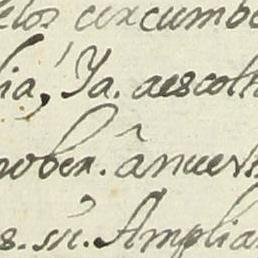 elos circumbe
lia, Ja. aescolh
nober. â nuest
s. sñ. Amplia